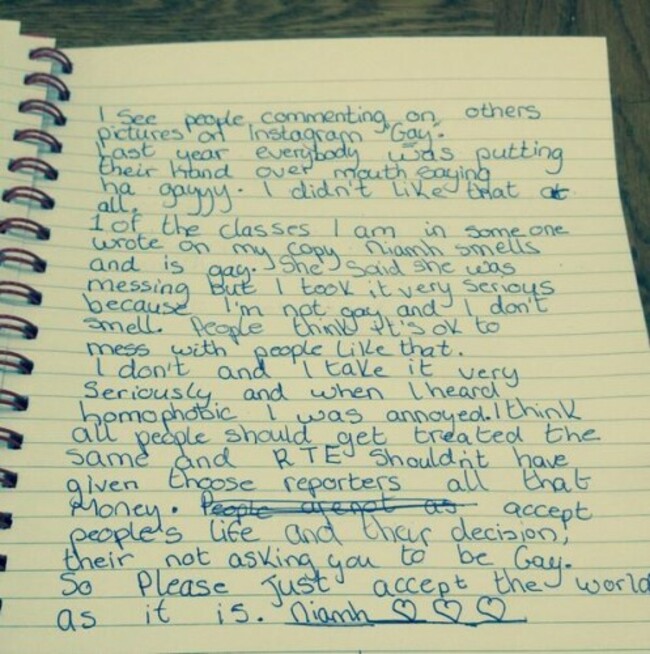 I See people commenting on others
pictures on Instagram "Gay".
Last year everybody was putting
their Hand over mouth saying
ha gayyy. I didn't like that at
all.
1 of the classes I am in someone
wrote on my copy Niamh smells
and is gay. She said she was
messing but I took it very serious
because I'm not gay and I don't
smell. People think it's ok to
mess with people like that.
I don't and I take it very
Seriously and when I heard
homophobic I was annoyed. I think
all people should get treated the
same and RTE Shouldn't have
given thoose reporters all that
Money. People arenot as accept
people's life and their decision,
their not asking you to be Gay.
So Please Just accept the world
as it is. Niamh ♡ ♡ ♡